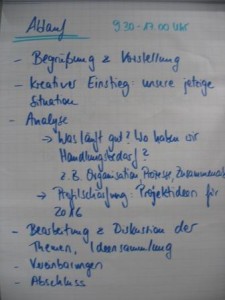 Ablauf 9.30-17.00 Uhr
- Begrüßung & Vorstellung
- Kreativer Einstieg: unsere jetzige
Situation
- Analyse
→ Was läuft gut? Wo haben wir
Handlungsbedarf?
z.B. Organisation, Prozesse, Zusammenarbeit
→ Profilschärfung: Projektideen für
2016
- Bearbeitung & Diskussion der
Themen, Ideensammlung
- Vereinbarungen
- Abschluss